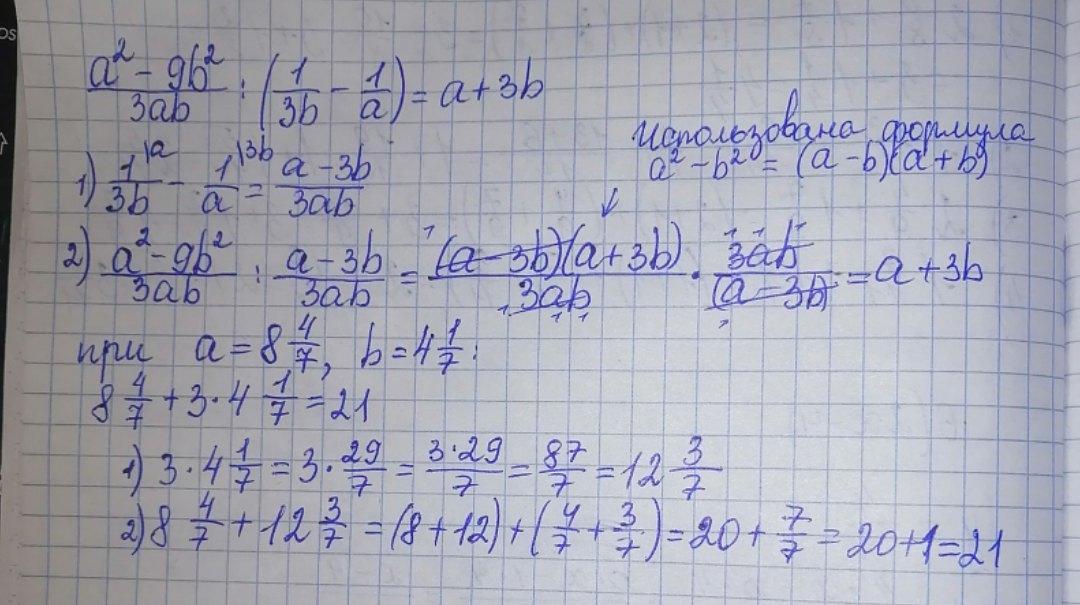 os
a² - 9b² / 3ab : (1/3b - 1/a) = a + 3b
Использована формула
a² - b² = (a - b)(a + b)
1) 1/3b |a - 1/a |3b = a - 3b / 3ab
2) a² - 9b² / 3ab : a - 3b / 3ab = (a - 3b)(a + 3b) / 3ab · 3ab / (a - 3b) = a + 3b
при a = 8 4/7, b = 4 1/7:
8 4/7 + 3 · 4 1/7 = 21
1) 3 · 4 1/7 = 3 · 29/7 = 3 · 29 / 7 = 87/7 = 12 3/7
2) 8 4/7 + 12 3/7 = (8 + 12) + (4/7 + 3/7) = 20 + 7/7 = 20 + 1 = 21